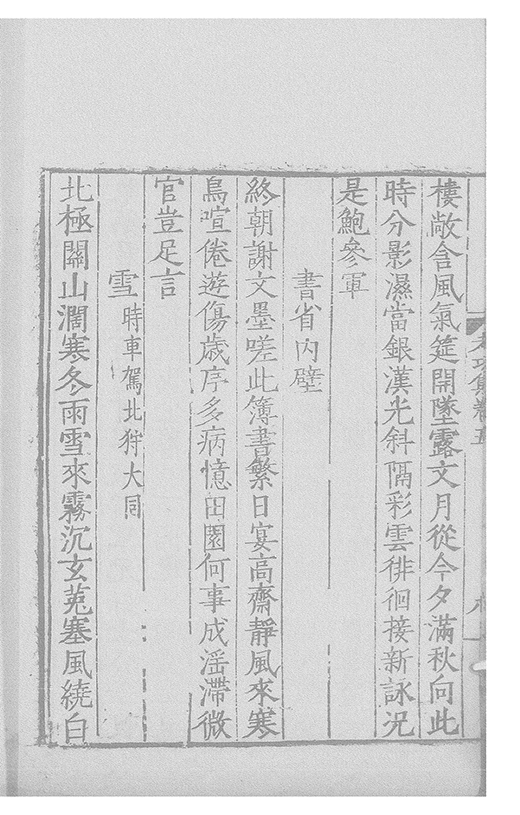 樓敞含風氣筵開墜露文月從今夕滿秋向此
時分影濕當銀漢光斜隔彩雲徘徊接新詠況
是鮑參軍
書省內壁
終朝謝文墨嗟此簿書繁日宴高齋靜風來寒
鳥喧倦遊傷歲序多病憶田園何事成滛滯微
官豈足言
雪時車駕北狩大同
北極關山濶寒冬雨雪來霧沉玄菟塞風繞白